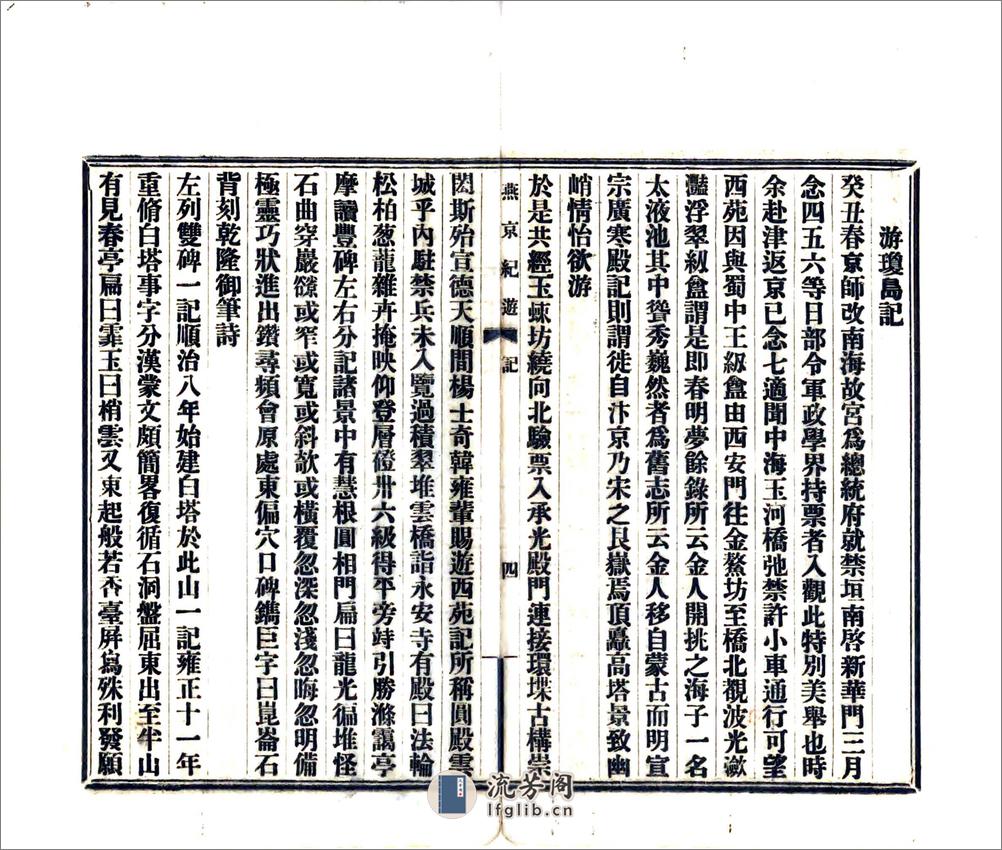 游瓊島記
癸丑春京師改南海故宮爲總統府就禁垣南啓新華門三月
念四五六等日部令軍政學界持票者入觀此特別美舉也時
余赴津返京已念七適聞中海玉河橋弛禁許小車通行可望
西苑因與蜀中王紉盦由西安門往金鰲坊至橋北觀波光瀲
灩浮翠紉盦謂是即春明夢餘錄所云金人開挑之海子一名
太液池其中聳秀巍然者爲舊志所云金人移自蒙古而明宣
宗廣寒殿記則謂徙自汴京乃宋之艮嶽焉頂矗高塔景致幽
峭情怡欲游
於是共經玉蝀坊繞向北驗票入承光殿門連接環堞古構崇
閎斯殆宣德天順間楊士奇韓雍輩賜遊西苑記所稱圓殿雲
城乎內駐禁兵未入覽過積翠堆雲橋詣永安寺有殿曰法輪
松柏葱蘢雜卉掩映仰登層磴卅六級得平旁峙引勝滌靄亭
摩讀豐碑左右分記諸景中有慧根圓相門扁曰龍光徧堆怪
石曲穿巖竇或窄或寬或斜欹或橫覆忽深忽淺忽晦忽明備
極靈巧狀進出鑽尋頻會原處東偏穴口碑鐫巨字曰崑崙石
背刻乾隆御筆詩
左列雙碑一記順治八年始建白塔於此山一記雍正十一年
重脩白塔事字分漢蒙文頗簡畧復循石洞盤屈東出至半山
有見春亭扁曰霏玉曰梢雲又東起般若香臺屏爲殊利發願
燕京紀遊
記
四
流芳阁
lfglib.cn